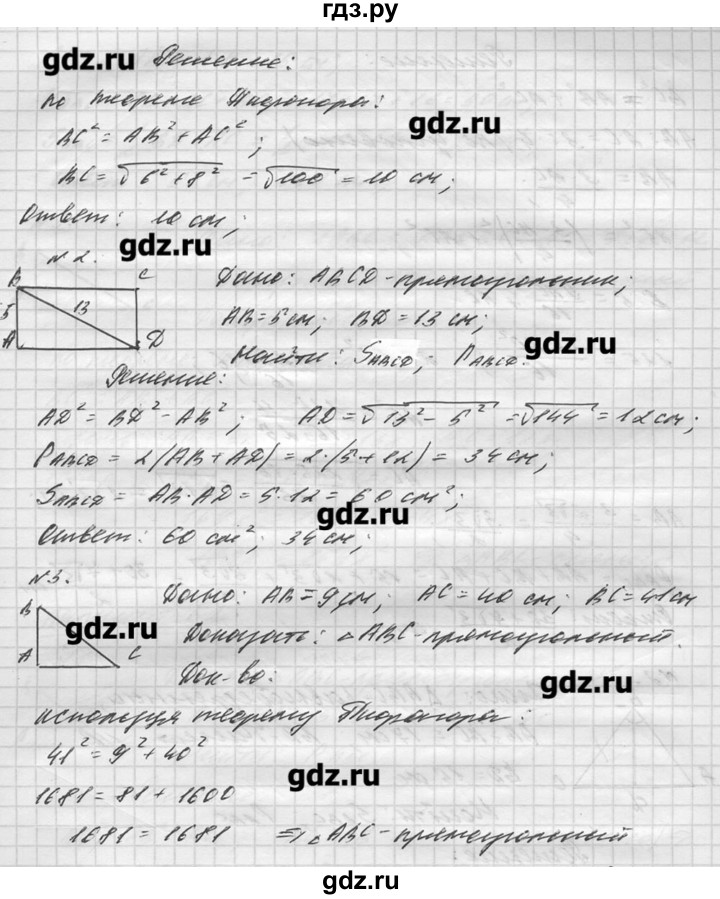 гдз.ру
gdz.ru Решение:
по теореме Пифагора:
gdz.ru
BC² = AB² + AC²;
BC = √6² + 8² = √100 = 10 см;
Ответ: 10 см;
gdz.ru
№2.
B C
5 13
A D
Дано: ABCD - прямоугольник;
AB = 5 см; BD = 13 см;
Найти: S_ABCD; P_ABCD.
gdz.ru
Решение:
AD² = BD² - AB²; AD = √13² - 5² = √144 = 12 см;
P_ABCD = 2(AB + AD) = 2·(5 + 12) = 34 см;
S_ABCD = AB·AD = 5·12 = 60 см²;
gdz.ru
Ответ: 60 см²; 34 см;
№3.
B
A C
gdz.ru
Дано: AB = 9 см; AC = 40 см; BC = 41 см
Доказать: △ABC - прямоугольный.
Док-во:
gdz.ru
используя теорему Пифагора:
41² = 9² + 40²
gdz.ru
1681 = 81 + 1600
1681 = 1681 ⇒ △ABC - прямоугольный
gdz.ru